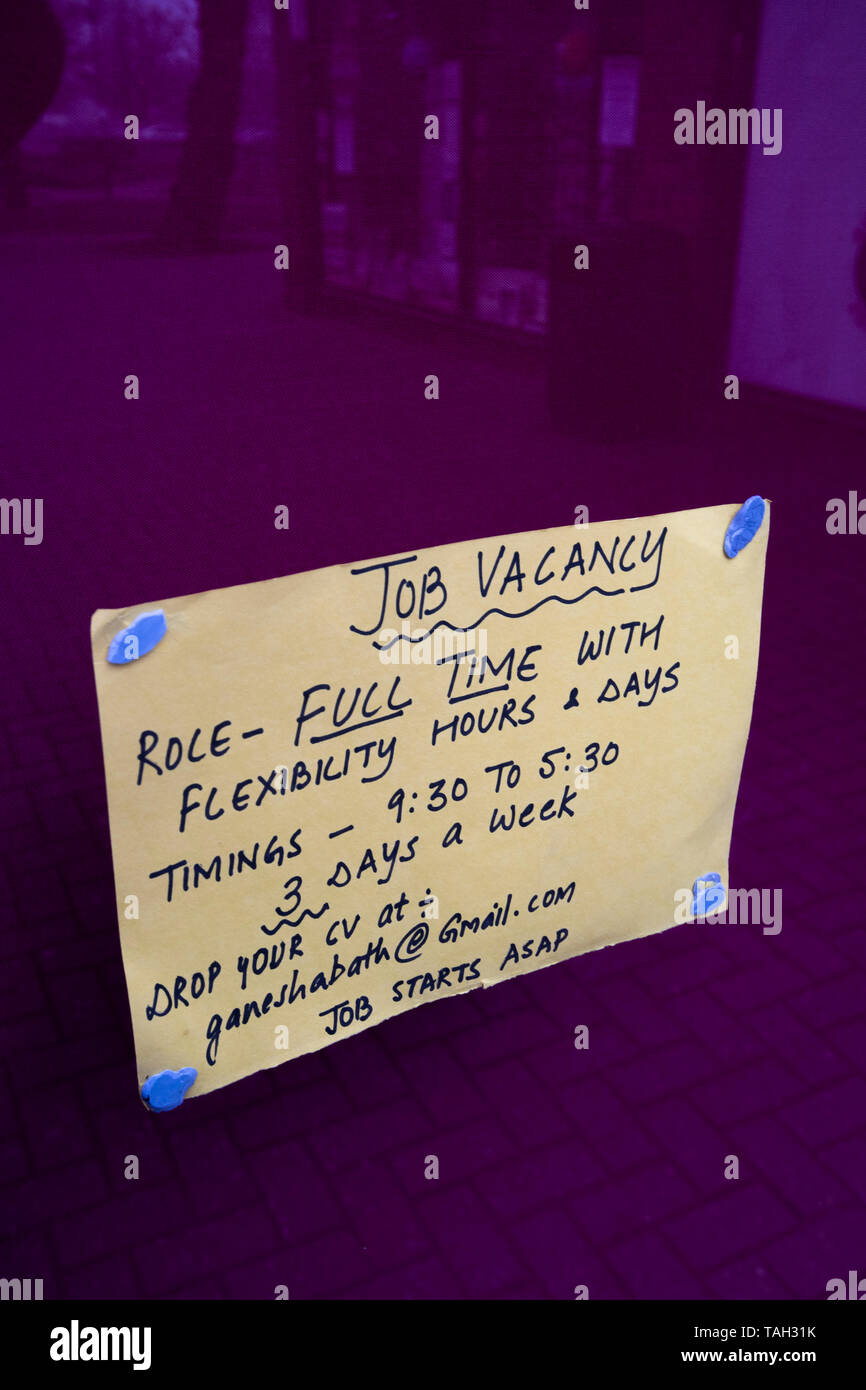 JOB VACANCY
ROLE- FULL TIME WITH
FLEXIBILITY HOURS & DAYS
TIMINGS - 9:30 TO 5:30
3 DAYS a week
DROP YOUR CV at ÷
ganeshabath@Gmail.com
JOB STARTS ASAP
alamy
Image ID: TAH31K
www.alamy.com